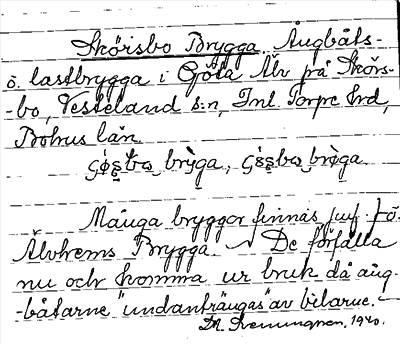 Skörsbo Brygga. Ångbåts-
o. lastbrygga i Göta Älv på Skörs-
-bo, Vesterland s:n, Inl. Torpe hrd,
Bohus län.
brỳga, brỳga.
Många bryggor finnas
Älvhems Brygga. De förfalla
nu och komma ur bruk då ång-
-båtarne "undanträngas" av bilarne.-
1940.